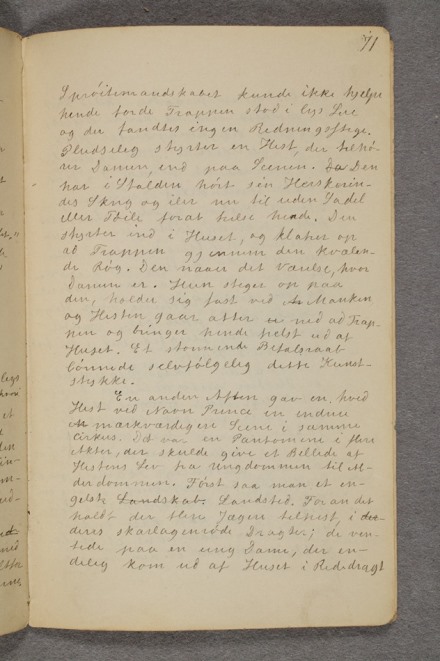 71
Sprøitemandskabet kunde ikke hjelpe
hende fordi Trappen stod i lys Lue
og der fandtes ingen Redningsstige.
Pludselig styrter en Hest, der tilhø-
rer Damen, ind paa Scenen. Den
har i Stalden hørt sin Herskerin-
des Skrig og iler nu til uden Sadel
eller Bidsel forat hende. Den
styrter ind i Huset, og klatrer op
ad Trappen gjennem den kvælen-
de Røg. Den naaer det Værelse, hvor
Damen er. Hun stiger op paa
den, holder sig fast ved Manken
og Hesten gaar atter ned ad Trap-
pen og bringer hende helst ud af
Huset. Et stormende Bifaldsraab
lönnede selvfölgelig dette Kunst-
stykke.
En anden Aften gav en hvid
Hest ved Navn Prince en endnu
mærkværdigere Scene i samme
Cirkus. Det var en Pantomime i flere
Akter, der skulde give et Billede af
Hestens Lev fra Ungdommen til Al-
derdommen. Först saa man et en-
gelsk Landskab. Landsted. Foran det
holdt der flere Jægere tilhest, i
deres skarlagenröde Dragter; de ven-
tede paa en ung Dame, der en-
delig kom ud af Huset i Rededragt